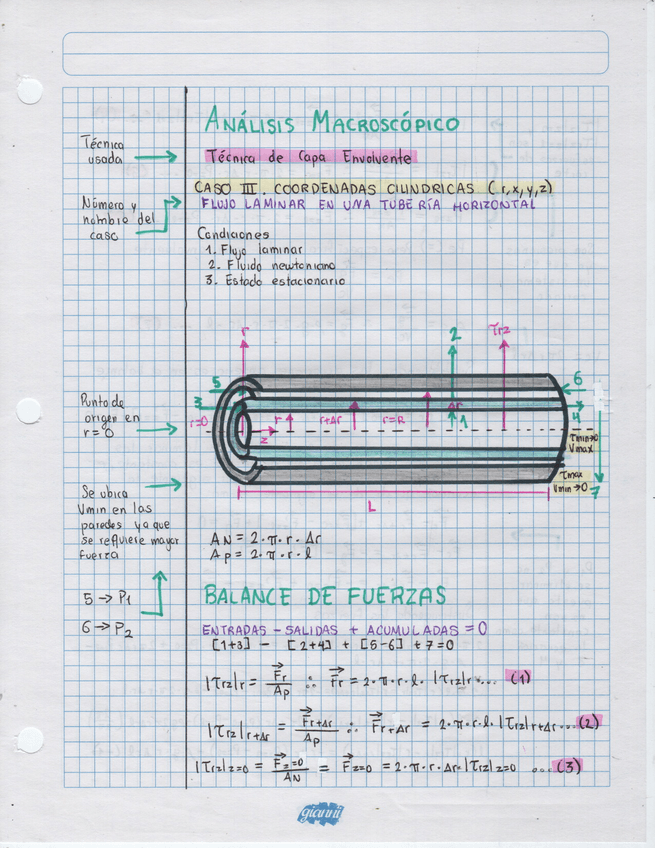 ANÁLISIS MACROSCÓPICO
Técnica
usada
Técnica de Capa Envolvente
CASO III. COORDENADAS CILINDRICAS (r,x,y,z)
Número y
nombre del
caso
FLUJO LAMINAR EN UNA TUBERÍA HORIZONTAL
Condiciones
1. Flujo laminar
2. Fluido newtoniano
3. Estado estacionario
r
2
τrz
5
6
3
4
Punto de
origen en
r=0
r=0
r
r+Δr
r=R
Δr
1
z
τmin→0
Vmax
τmax
Vmin→0
7
L
Se ubica
Vmin en las
paredes ya que
se requiere mayor
fuerza
AN = 2·π·r·Δr
Ap = 2·π·r·l
5→P1
6→P2
BALANCE DE FUERZAS
ENTRADAS - SALIDAS + ACUMULADAS = 0
[1+3] - [2+4] + [5-6] +7=0
|τrz|r = F⃗r/Ap ∴ F⃗r = 2·π·r·l·|τrz|r... (1)
|τrz|r+Δr = F⃗r+Δr/Ap ∴ F⃗r+Δr = 2·π·r·l·|τrz|r+Δr...(2)
|τrz|z=0 = F⃗z=0/AN = F⃗z=0 = 2·π·r·Δr·|τrz|z=0 ...(3)
gianni